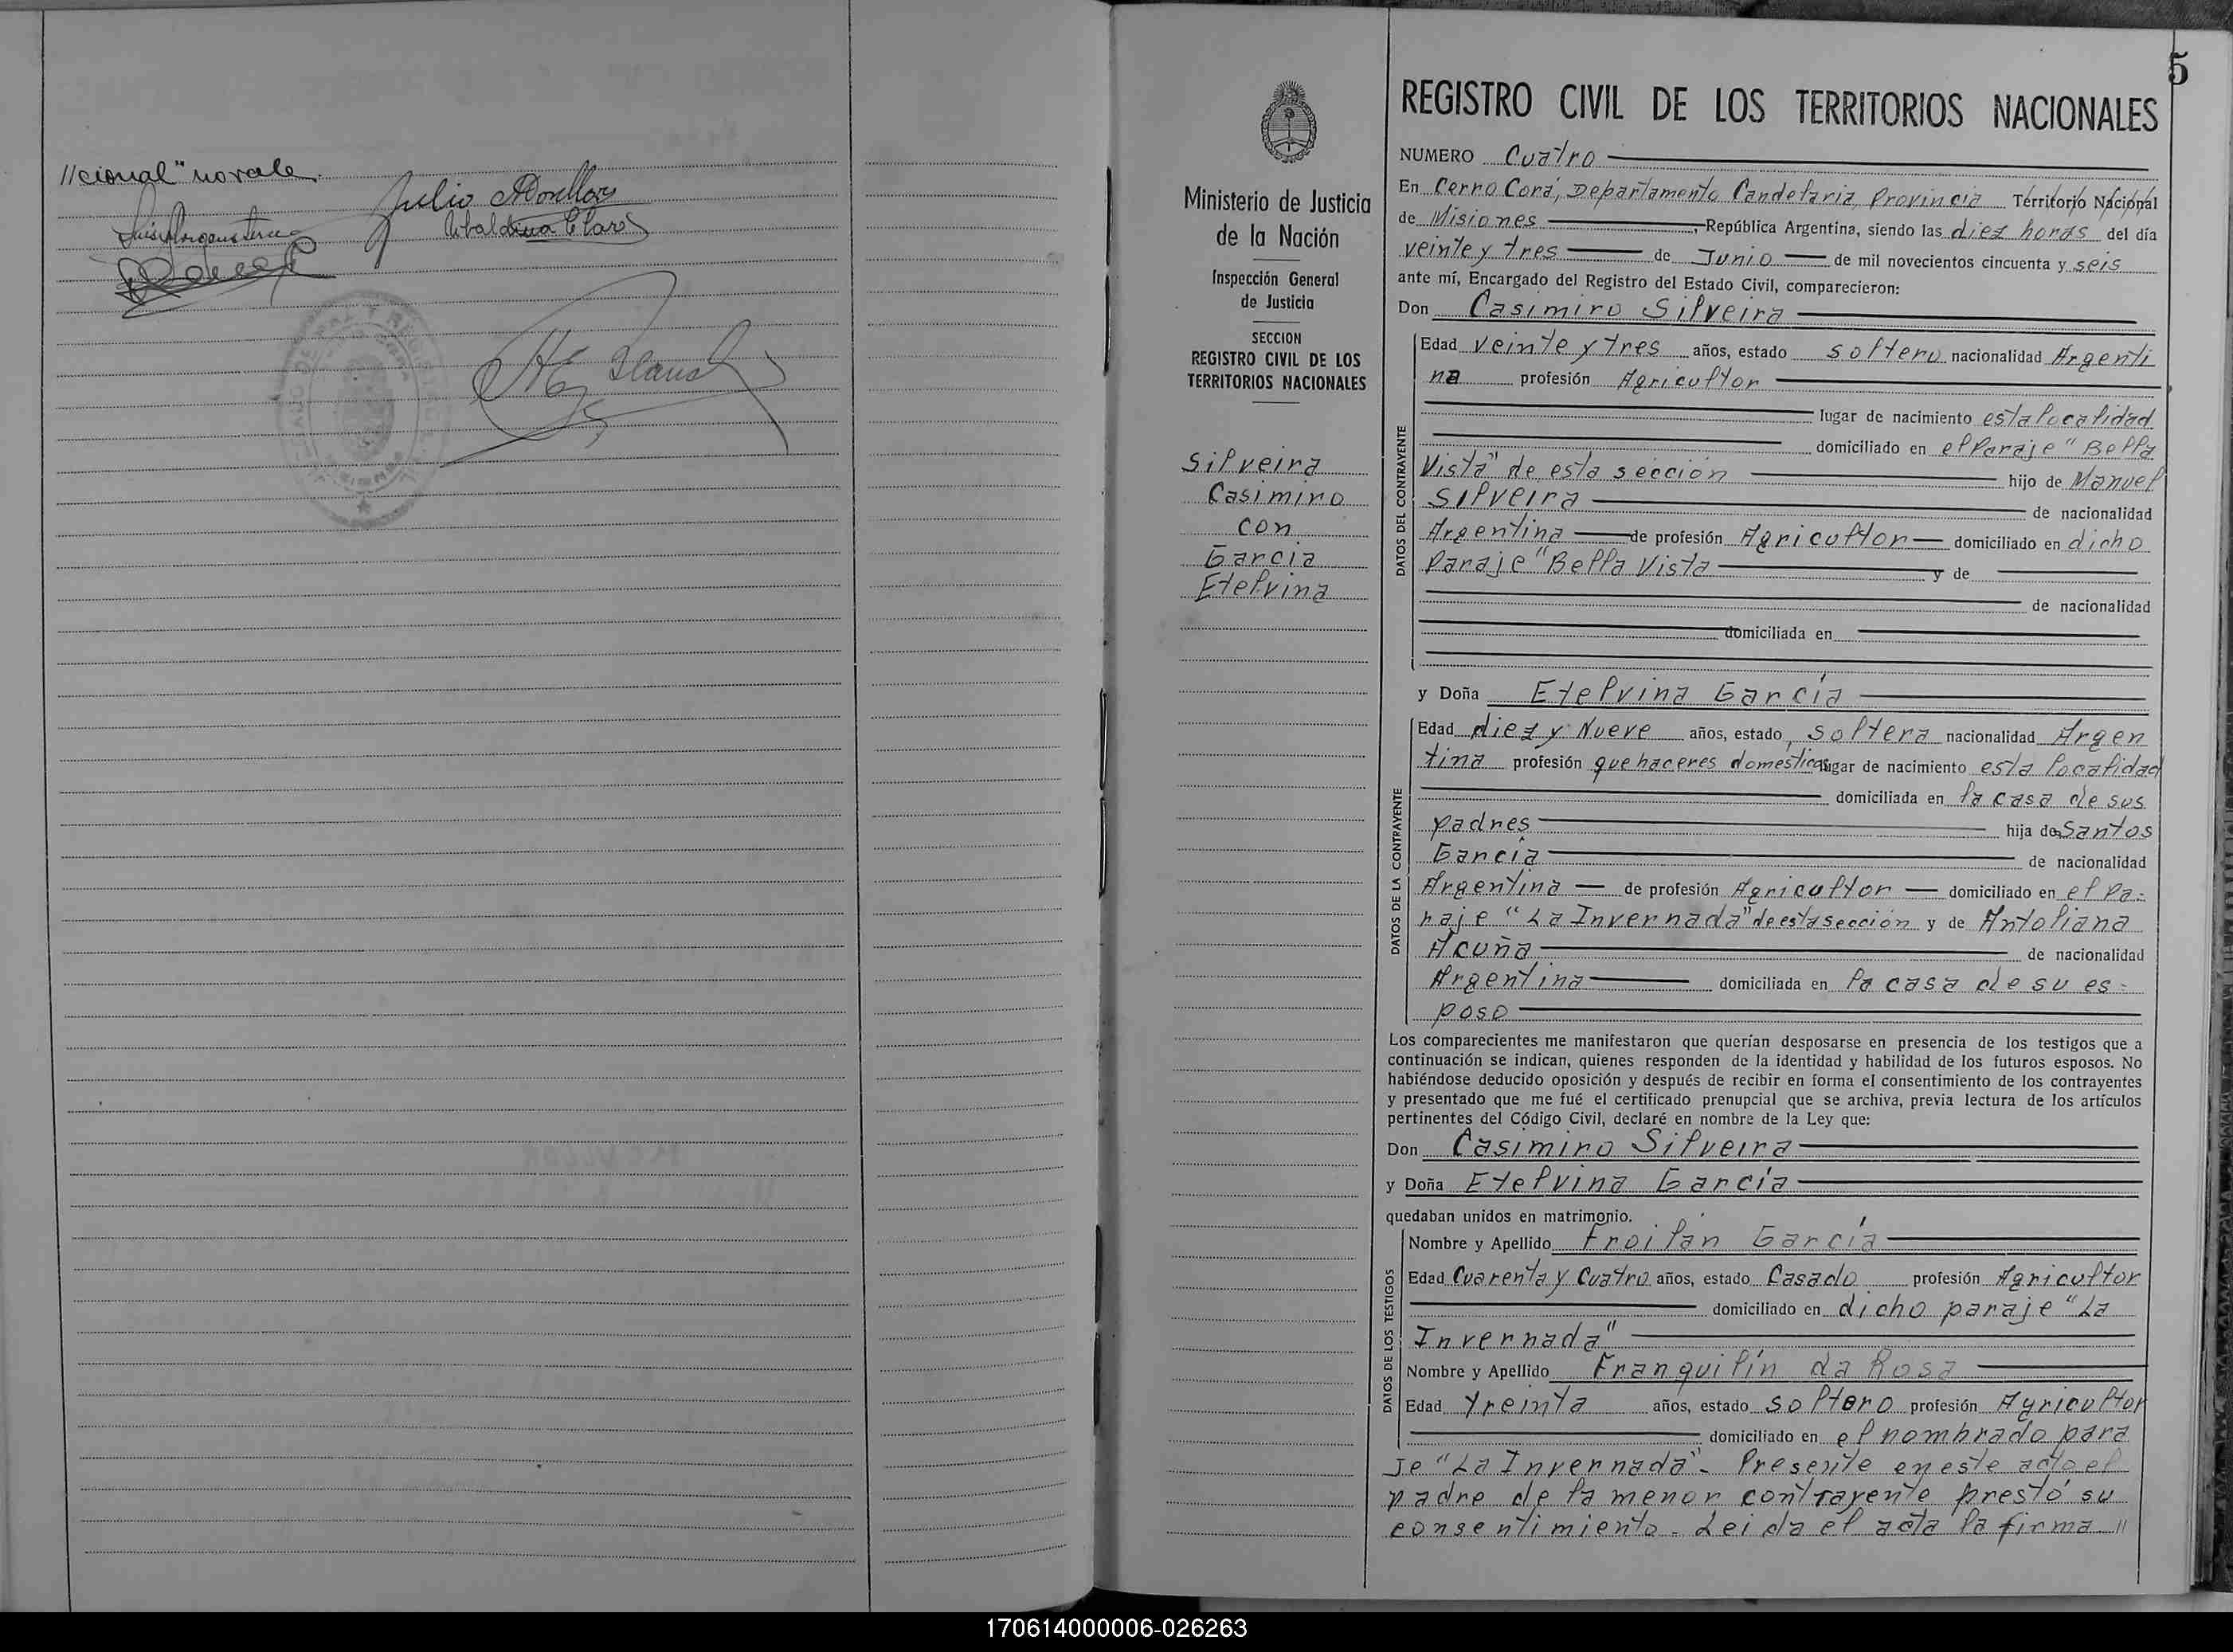 //cional" no vale.
Julio
Ubaldina Claro
5
Ministerio de Justicia
de la Nación
Inspección General
de Justicia
SECCION
REGISTRO CIVIL DE LOS
TERRITORIOS NACIONALES
Silveira
Casimiro
con
Garcia
Etelvina
REGISTRO CIVIL DE LOS TERRITORIOS NACIONALES
NUMERO Cuatro
En Cerro Corá, Departamento Candelaria, Provincia Territorio Nacional
de Misiones, República Argentina, siendo las diez horas del día
veinte y tres de Junio de mil novecientos cincuenta y seis
ante mí, Encargado del Registro del Estado Civil, comparecieron:
Don Casimiro Silveira
DATOS DEL CONTRAYENTE
Edad veinte y tres años, estado soltero nacionalidad Argenti
na profesión Agricultor
lugar de nacimiento esta localidad
domiciliado en el Paraje "Bella
Vista" de esta sección hijo de Manuel
Silveira de nacionalidad
Argentina de profesión Agricultor domiciliado en dicho
Paraje "Bella Vista y de
de nacionalidad
domiciliada en
y Doña Etelvina García
DATOS DE LA CONTRAYENTE
Edad diez y Nueve años, estado soltera nacionalidad Argen
tina profesión quehaceres domesticos lugar de nacimiento esta localidad
domiciliada en la casa de sus
padres hija de Santos
García de nacionalidad
Argentina de profesión Agricultor domiciliado en el Pa-
raje "La Invernada" de esta sección y de Antoliana
Acuña de nacionalidad
Argentina domiciliada en la casa de su es-
poso
Los comparecientes me manifestaron que querían desposarse en presencia de los testigos que a
continuación se indican, quienes responden de la identidad y habilidad de los futuros esposos. No
habiéndose deducido oposición y después de recibir en forma el consentimiento de los contrayentes
y presentado que me fué el certificado prenupcial que se archiva, previa lectura de los artículos
pertinentes del Código Civil, declaré en nombre de la Ley que:
Don Casimiro Silveira
y Doña Etelvina García
quedaban unidos en matrimonio.
DATOS DE LOS TESTIGOS
Nombre y Apellido Froilán García
Edad Cuarenta y Cuatro años, estado Casado profesión Agricultor
domiciliado en dicho paraje "La
Invernada"
Nombre y Apellido Franquilín da Rosa
Edad treinta años, estado soltero profesión Agricultor
domiciliado en el nombrado para
je "La Invernada"- Presente en este acto el
padre de la menor contrayente prestó su
consentimiento.- Leida el acta la firma //
170614000006-026263